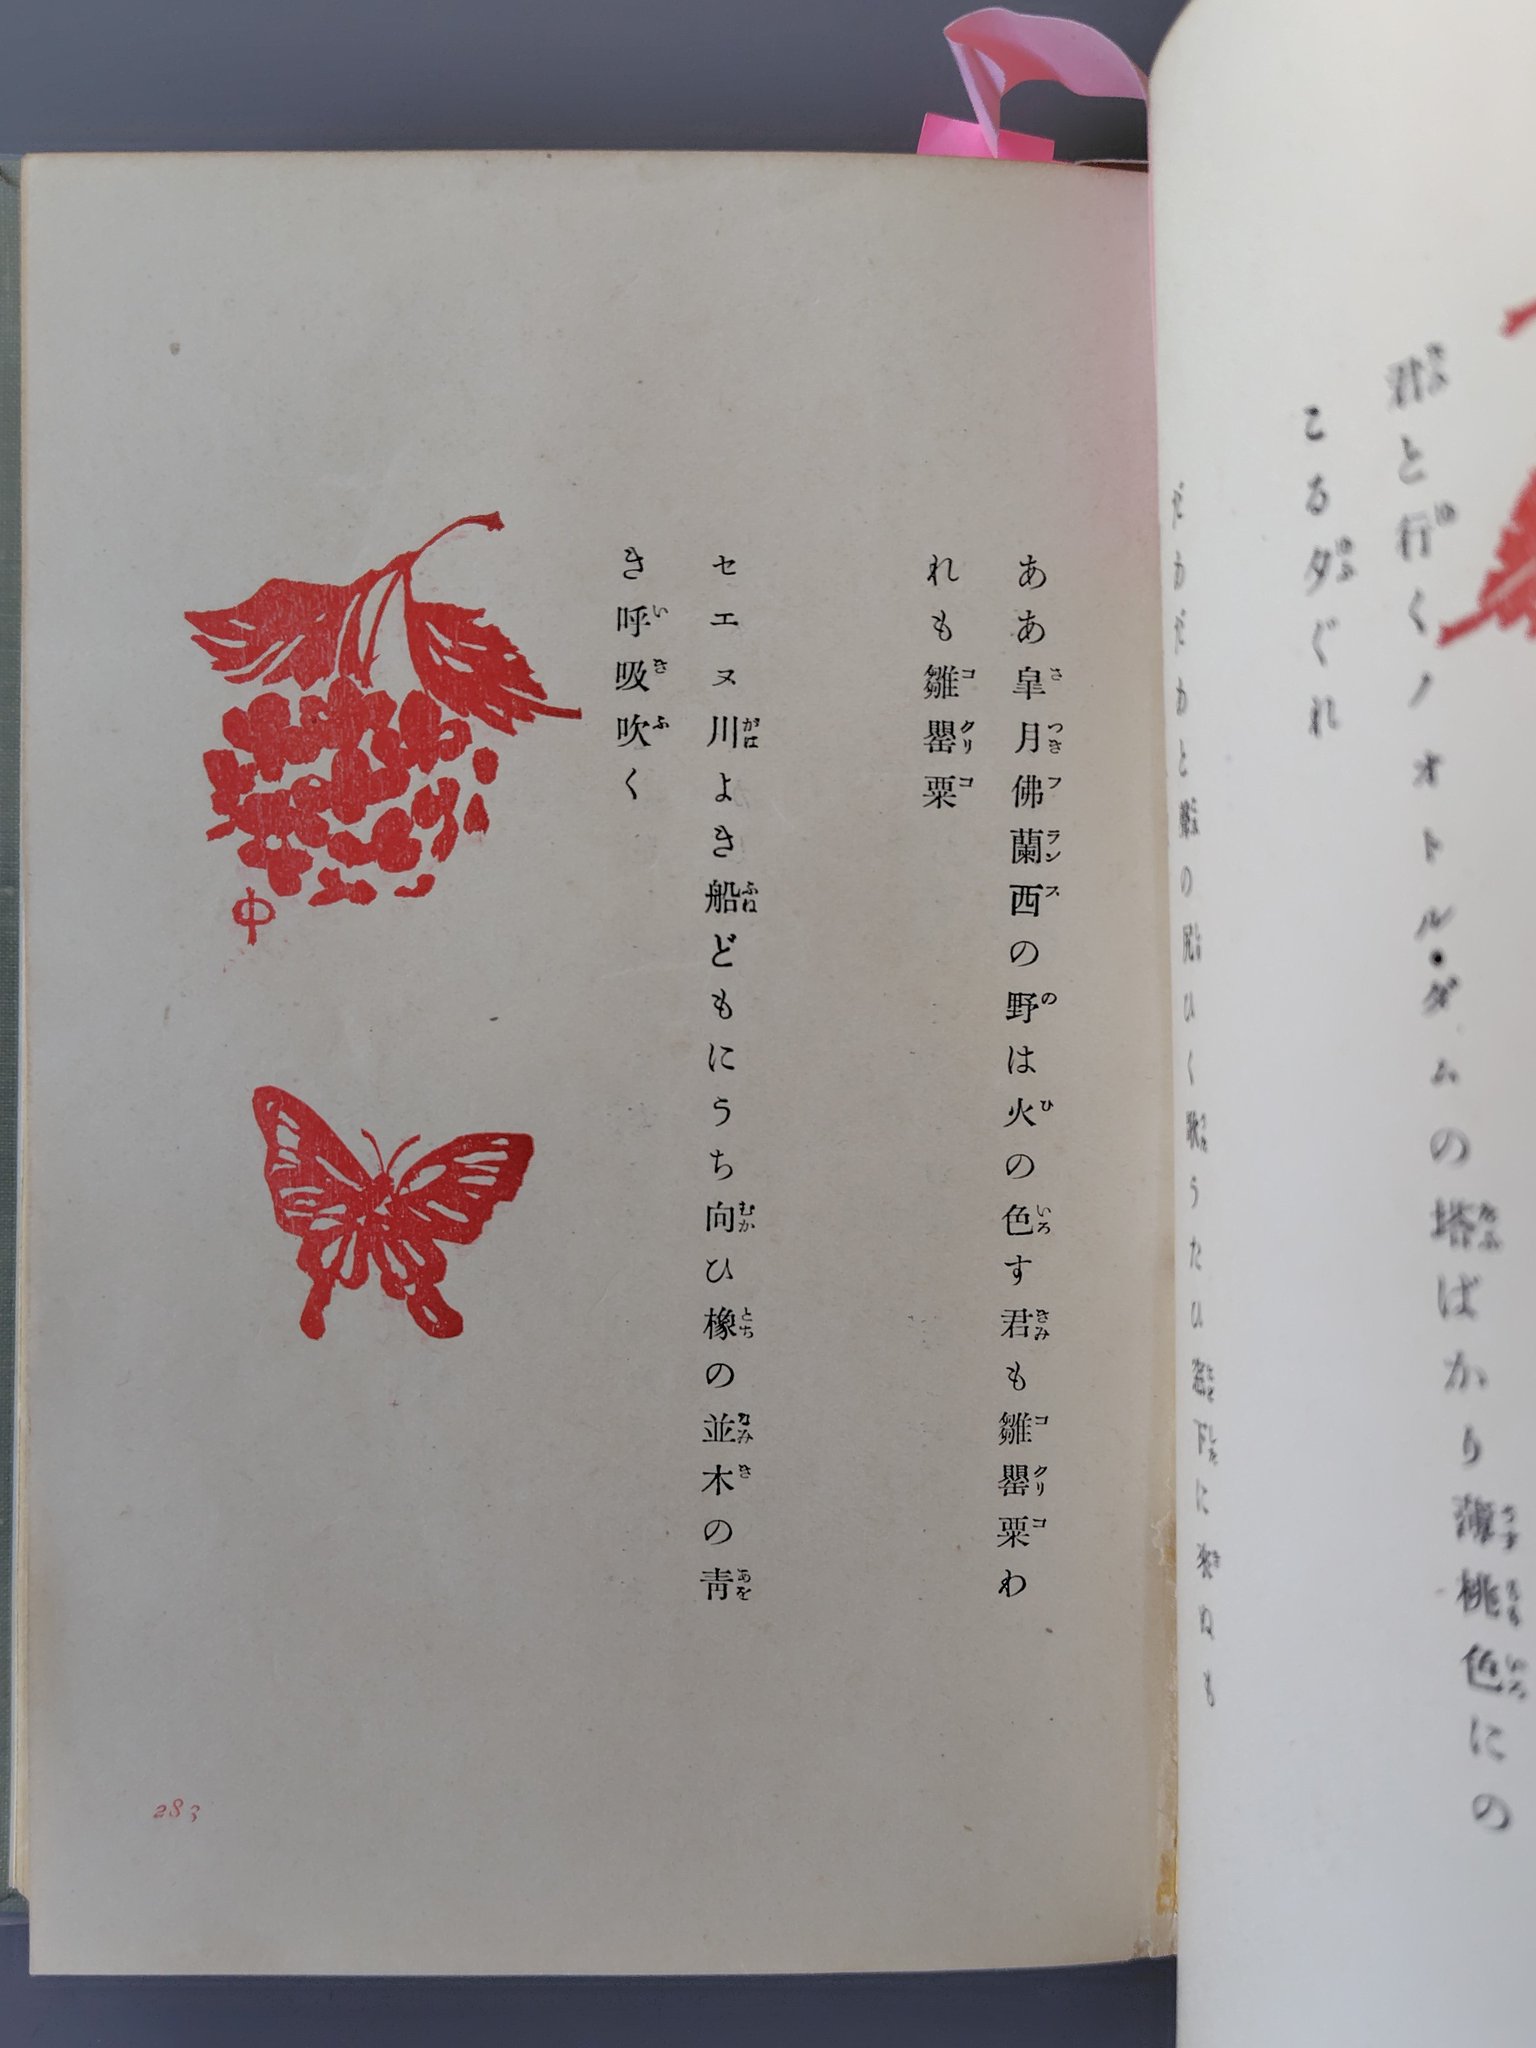 君と行くノオトル・ダムの塔ばかり薄桃色にの
こる夕ぐれ
ああ皐月佛蘭西の野は火の色す君も雛罌粟わ
れも雛罌粟
セエヌ川よき船どもにうち向ひ橡の並木の青
き呼吸吹く
中
283